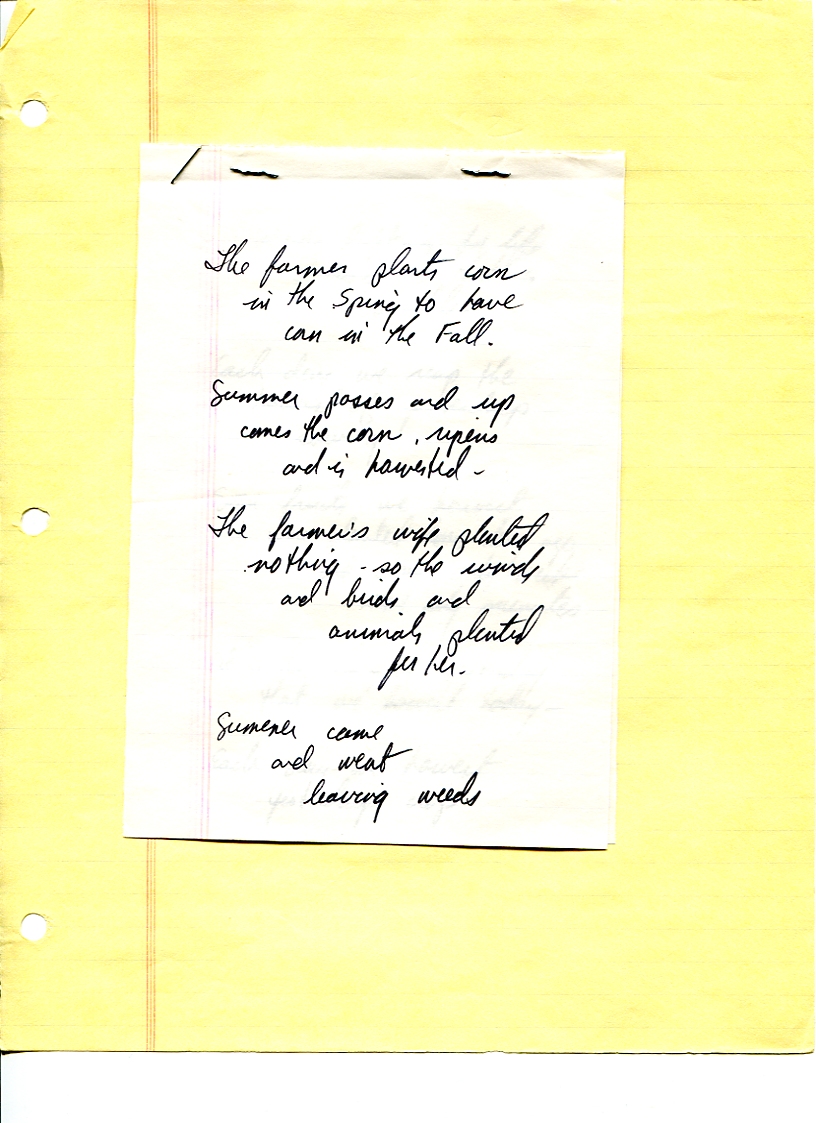 The farmer plants corn
in the Spring to have
corn in the Fall.
Summer passes and up
comes the corn, ripens
and is harvested -
The farmer's wife planted
nothing - so the winds
and birds and
animals planted
for her.
Summer came
and went
leaving weeds